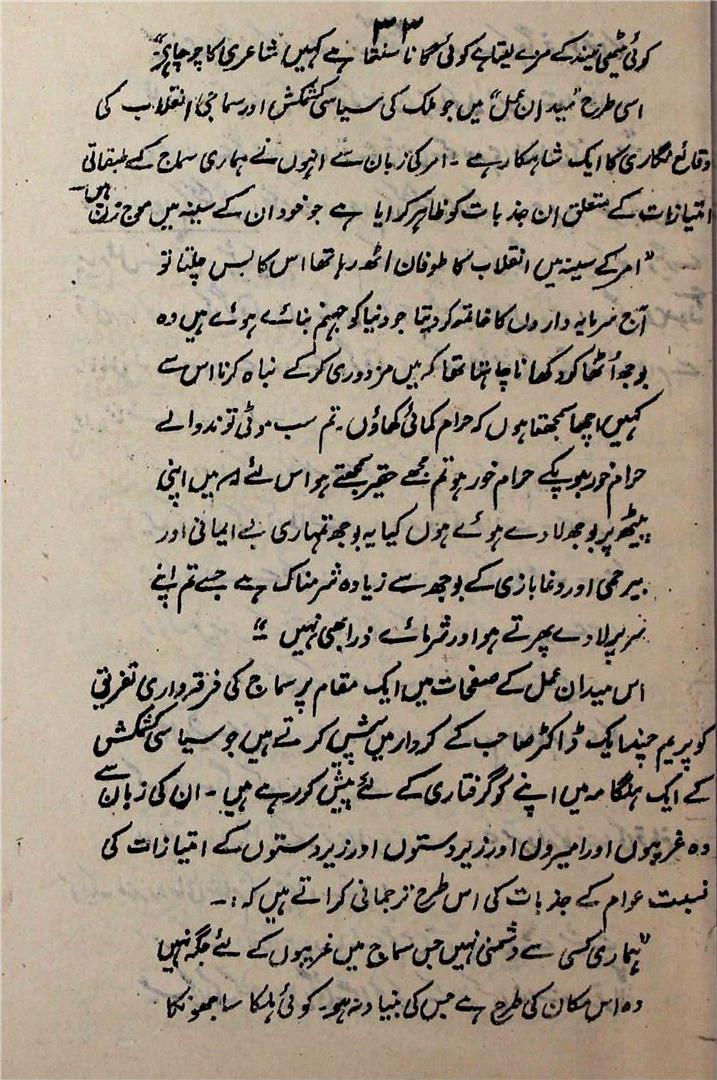 ۳۳
کوئی میٹھی نیند کے مزے لیتا ہے کوئی گانا سنتا ہے کہیں شاعری کا چرچا ہے"
اسی طرح "میدان عمل" میں جو ملک کی سیاسی کشمکش اور سماجی انقلاب کی
وقائع نگاری کا ایک شاہکار ہے ۔ امر کی زبان سے انہوں نے ہماری سماج کے طبقاتی
امتیازات کے متعلق ان جذبات کو ظاہر کرایا ہے جو خود ان کے سینہ میں موج زن ہیں۔
"امر کے سینہ میں انقلاب کا طوفان اٹھ رہا تھا اس کا بس چلتا تو
آج سرمایہ داروں کا خاتمہ کر دیتا جو دنیا کو جہنم بنائے ہوئے ہیں وہ
بوجھ اُٹھا کر دکھانا چاہتا تھا کہ میں مزدوری کر کے نباہ کرنا اس سے
کہیں اچھا سمجھتا ہوں کہ حرام کمائی کھاؤں۔ تم سب موٹی توند والے
حرام خور ہو پکے حرام خور ہو تم مجھے حقیر سمجھتے ہو اس لئے کہ میں اپنی
پیٹھ پر بوجھ لادے ہوئے ہوں کیا یہ بوجھ تمہاری بے ایمانی اور
بیرحمی اور دغا بازی کے بوجھ سے زیادہ شرمناک ہے جسے تم اپنے
سر پر لادے پھرتے ہو اور شرمائے ذرا بھی نہیں ۔"
اس میدان عمل کے صفحات میں ایک مقام پر سماج کی فرقہ واری تفریق
کو پریم چند ایک ڈاکٹر صاحب کے کردار میں پیش کرتے ہیں جو سیاسی کشمکش
کے ایک ہنگامہ میں اپنے کو گرفتاری کے لئے پیش کر رہے ہیں ۔ ان کی زبان سے
وہ غریبوں اور امیروں اور زیردستوں اور زبردستوں کے امتیازات کی
نسبت عوام کے جذبات کی اس طرح ترجمانی کراتے ہیں کہ :۔
"ہماری کسی سے دشمنی نہیں جس سماج میں غریبوں کے لئے جگہ نہیں
وہ اس مکان کی طرح ہے جس کی بنیاد نہ ہو۔ کوئی ہلکا سا جھونکا